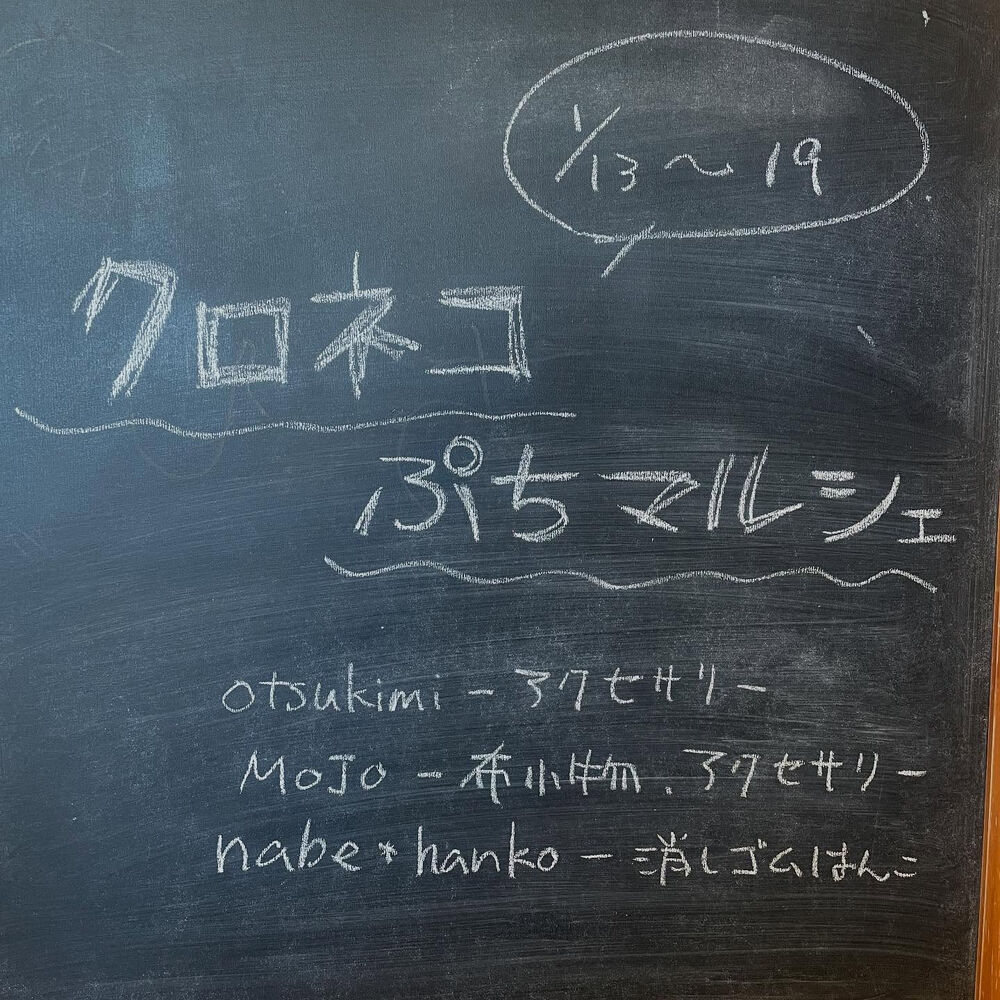 1/13〜19
クロネコ
ぷちマルシェ
otsukimi - アクセサリー
MoJo - 布小物、アクセサリー
nabe*hanko - 消しゴムはんこ